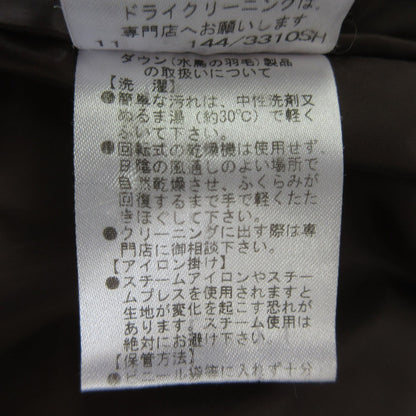 ドライクリーニングは、
専門店へお願いします
11 144/3310SH
ダウン(水鳥の羽毛)製品
の取扱いについて
【洗 濯】
●簡単な汚れは、中性洗剤又
ぬるま湯(約30℃)で軽く
ふいて下さい。
●回転式の乾燥機は使用せず、
日陰の風通しのよい場所で
自然乾燥させ、ふくらみが
回復するまで手で軽くたた
きほぐして下さい。
●クリーニングに出す際は専
門店に御相談下さい。
【アイロン掛け】
●スチームアイロンやスチー
ムプレスを使用されますと
生地が変化を起こす恐れが
あります。スチーム使用は
絶対にお避け下さい。
【保管方法】
●ビニール袋等に入れず十分